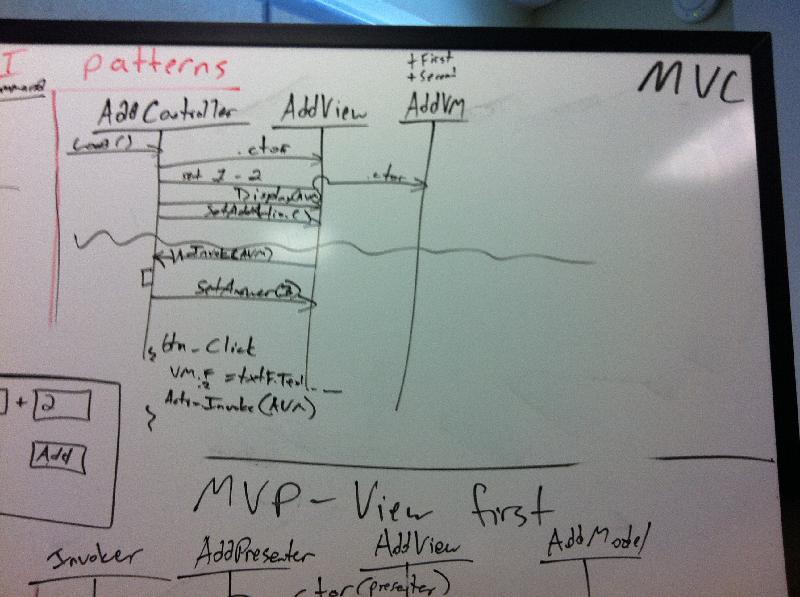 I patterns
MVC
+ First
+ Second
AddController AddView AddVM
.ctor
.ctor
Display(AVM)
Invoke(AVM)
SetAnswer(3)
btn_Click
VM.F = txtF.Text
Invoke(AVM)
+ 2
Add
MVP - View first
Invoker AddPresenter AddView AddModel
ctor(presenter)